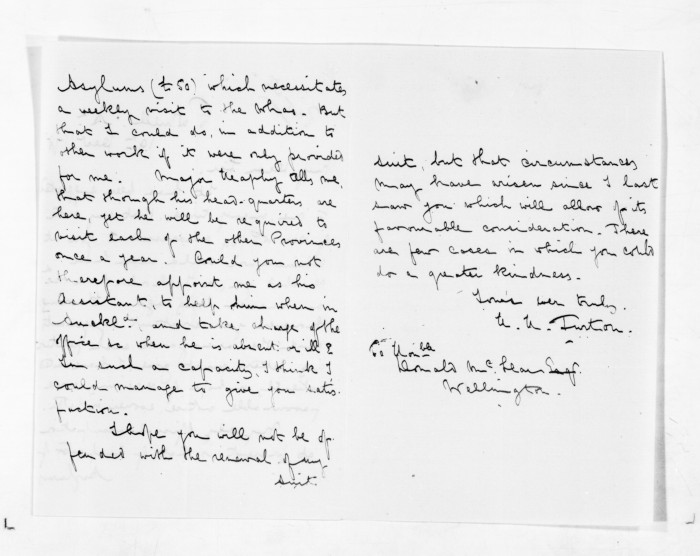 Asylums (£50) which necessitates
a weekly visit to the Whau. But
that I could do, in addition to
other work if it were only provided
for me. Major Heaphy tells me,
that though his head-quarters are
here, yet he will be required to
visit each of the other Provinces
once a year. Could you not
therefore appoint me as his
Assistant, to help him when in
Auckld. and take charge of the
office &c when he is absent.
In such a capacity, I think I
could manage to give you satis-
faction.
I hope you will not be of-
fended with the renewal of my
suit.
suit, but that circumstances
may have arisen since I last
saw you which will allow of its
favourable consideration. There
are few cases in which you could
do a greater kindness.
Yours ever truly.
H. H. Turton.
Honble
Donald McLean Esqr.
Wellington.